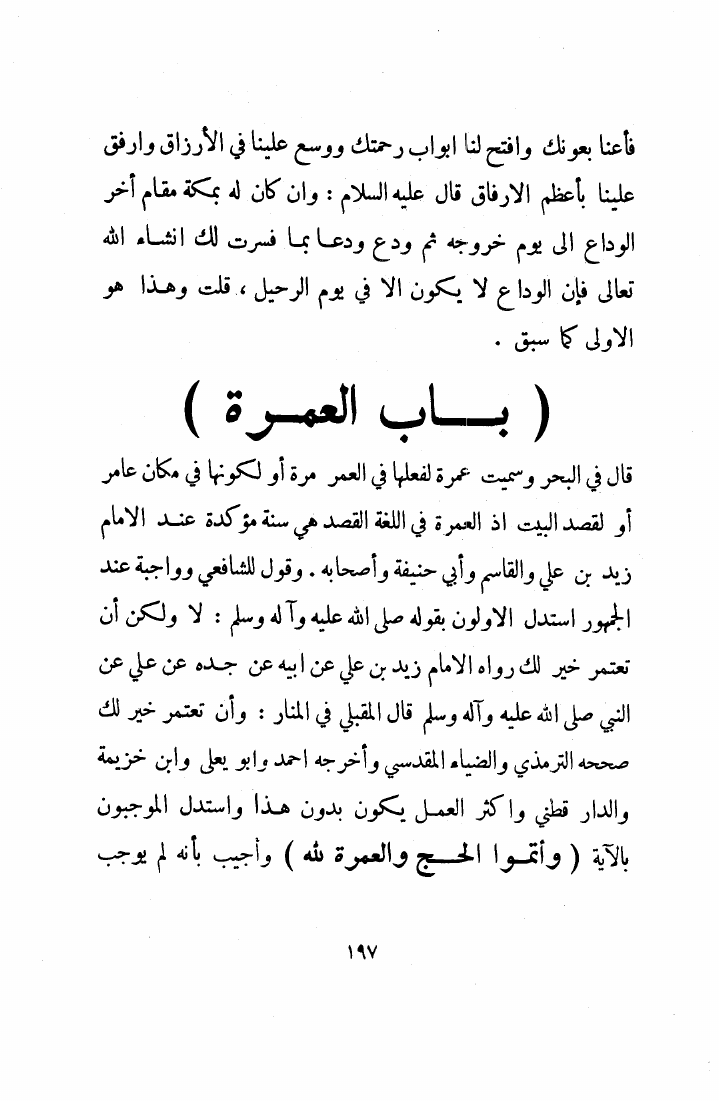 فأعنا بعونك وافتح لنا ابواب رحمتك ووسع علينا في الأرزاق وارفق
علينا بأعظم الارفاق قال عليه السلام : وان كان له بمكة مقام أخر
الوداع الى يوم خروجه ثم ودع ودعا بما فسرت لك انشاء الله
تعالى فإن الوداع لا يكون الا في يوم الرحيل ، قلت وهذا هو
الاولى كما سبق .
( بــاب العمــرة )
قال في البحر وسميت عمرة لفعلها في العمر مرة أو لكونها في مكان عامر
أو لقصد البيت اذ العمرة في اللغة القصد هي سنة مؤكدة عند الامام
زيد بن علي والقاسم وأبي حنيفة وأصحابه . وقول للشافعي وواجبة عند
الجمهور استدل الاولون بقوله صلى الله عليه وآله وسلم : لا ولكن أن
تعتمر خير لك رواه الامام زيد بن علي عن ابيه عن جده عن علي عن
النبي صلى الله عليه وآله وسلم قال المقبلي في المنار : وأن تعتمر خير لك
صححه الترمذي والضياء المقدسي وأخرجه احمد وابو يعلى وابن خزيمة
والدار قطني واكثر العمل يكون بدون هذا واستدل الموجبون
بالآية ( وأتمــوا الحــج والعمرة لله ) وأجيب بأنه لم يوجب
١٩٧